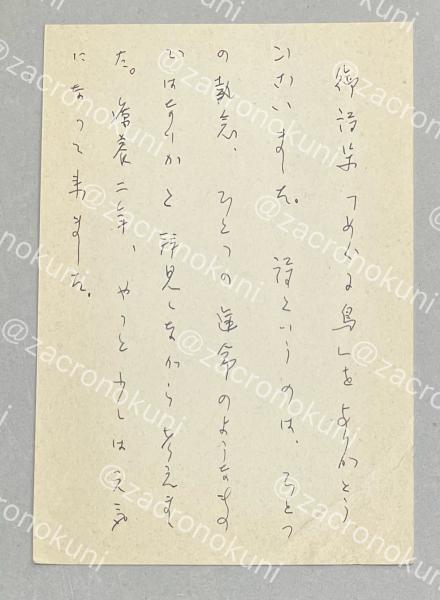 御詩集「つめたい鳥」をありがとう
ございました。詩というのは、ひとつ
の執念、ひとつの運命のようなもの
ではないかと拝見しながら考えまし
た。療養二年、やっと少しは元気
になって来ました。
@zacronokuni